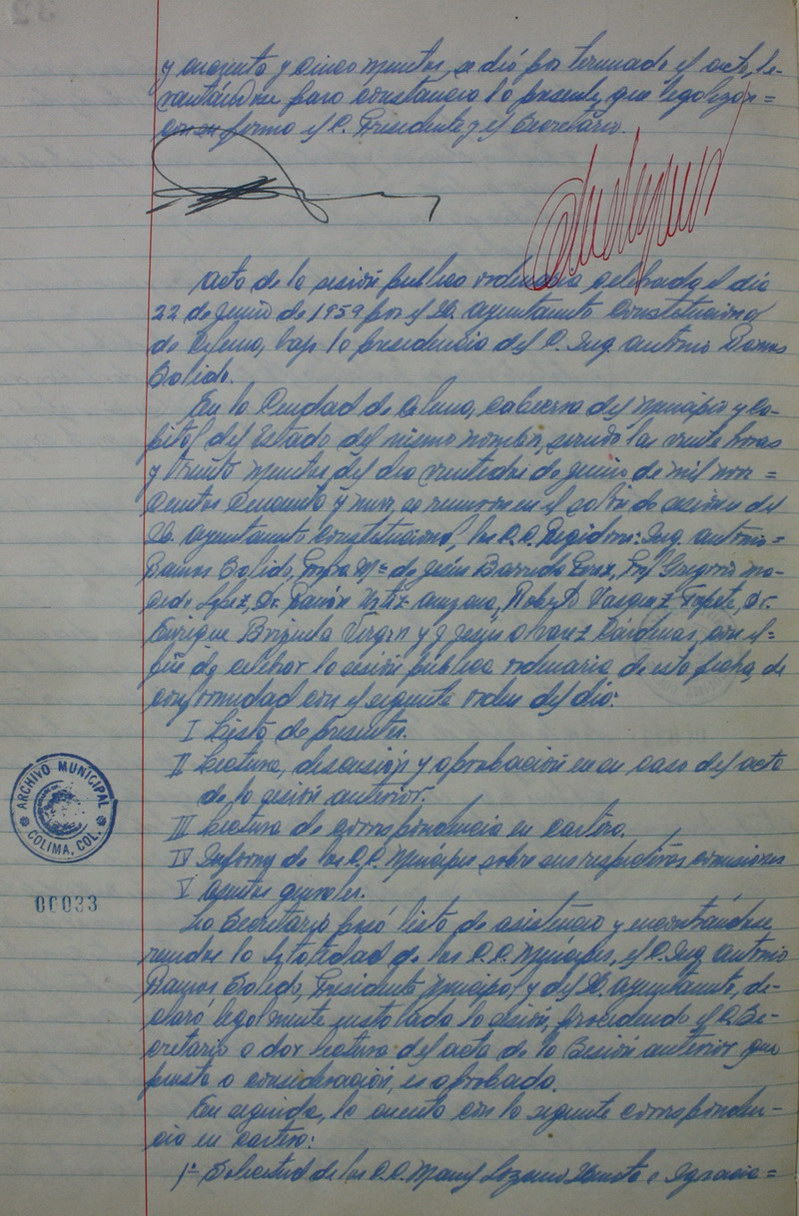 y cuarenta y cinco minutos, se dió por terminado el acto, le-
vantándose para constancia la presente, que legalizan=
con su firma el C. Presidente y el Secretario.
Acta de la sesión pública ordinaria celebrada el día
22 de junio de 1959 por el H. Ayuntamiento Constitucional
de Colima, bajo la presidencia del C. Ing. Antonio Ramos
Salido.
En la Ciudad de Colima, cabecera del Municipio y Ca-
pital del Estado del mismo nombre, siendo las veinte horas
y treinta minutos del día veintidós de junio de mil nove=
cientos cincuenta y nueve, se reunieron en el salón de sesiones del
H. Ayuntamiento Constitucional, los C.C. Regidores: Ing. Antonio=
Ramos Salido, Profra Ma. de Jesús Barreda, Prof. Gregorio Ma-
cedo López, Dr. Ramón Ortiz, Roberto Vasquez Topete, Dr.
Enrique Brizuela Virgen y J. Jesús Alvarez Cárdenas, con el=
fin de celebrar la sesión pública ordinaria de esta fecha, de
conformidad con el siguiente orden del día:
I Lista de presentes.
II Lectura, discusión y aprobación en su caso del acta
de la sesión anterior.
III Lectura de correspondencia en cartera.
IV Informe de los C.C. Munícipes sobre sus respectivas comisiones
V Asuntos generales.
ARCHIVO MUNICIPAL
COLIMA, COL.
00033
La Secretaría pasó lista de asistencia y encontrándose
reunidos la totalidad de los C.C. Munícipes, el C. Ing. Antonio
Ramos Salido, Presidente Municipal y del H. Ayuntamiento, de-
claró legalmente instalada la sesión, procediendo el C. Se-
cretario a dar lectura del acta de la Sesión anterior que
puesta a consideración, es aprobada.
En seguida, da cuenta con la siguiente corresponden-
cia en cartera:
1a- Solicitud de los C.C. Manuel Lozano e Ignacio=